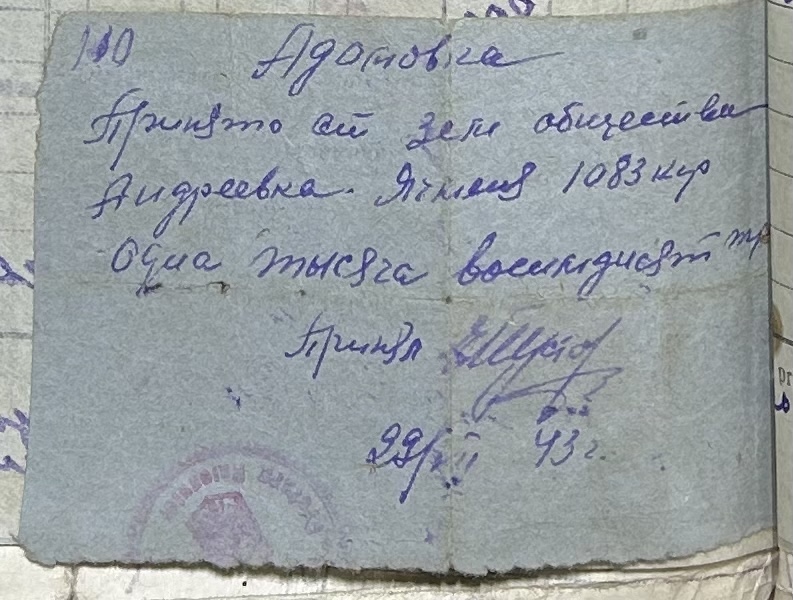 110
Адамовка
Принято от зем общества
Андреевка. Ячменя 1083 кгр
Одна тысяча восимдисят тр
Принял
43 г.